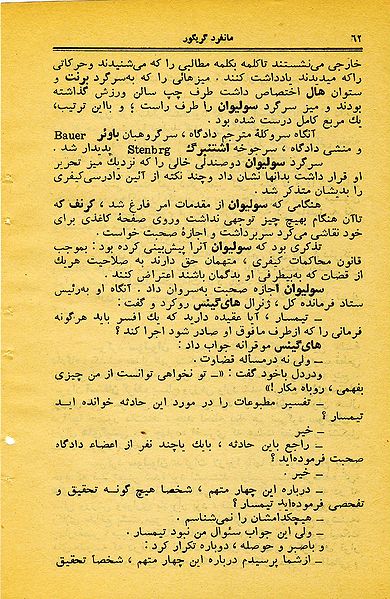 ۶۲ مانفرد گریگور
خارجی می‌نشستند تاکلمه بکلمه مطالبی را که می‌شنیدند وحرکاتی
راکه میدیدند یادداشت کنند . میزهائی را که به‌سرگرد برنت و
ستوان هال اختصاص داشت طرف چپ سالن ورزش گذاشته
بودند و میز سرگرد سولیوان را طرف راست ؛ و باا‌ین ترتیب،
یك مربع کامل درست شده بود .
آنگاه سروکلهٔ مترجم دادگاه ، سرگروهبان باوئر Bauer
و منشی دادگاه ، سرجوخه اشتنبرگ Stenbrg پدیدار شد .
سرگرد سولیوان دوصندلی خالی را که نزدیك میز تحریر
او قرار داشت بدانها نشان داد وچند نکته از آئین دادرسی‌کیفری
را بدیشان متذکر شد .
هنگامی که سولیوان از مقدمات امر فارغ شد ، کرنف که
تاآن هنگام بهیچ چیز توجهی نداشت وروی صفحهٔ کاغذی برای
خود نقاشی می‌کرد سربرداشت و اجازهٔ صحبت خواست .
تذکری بود که سولیوان آنرا پیش‌بینی کرده بود : بموجب
قانون محاکمات کیفری ، متهمان حق دارند به صلاحیت هریك
از قضات که به‌بیطرفی او بدگمان باشند اعتراض کنند .
سولیوان اجازه صحبت به‌سروان داد . آنگاه او به‌رئیس
ستاد فرمانده کل ، ژنرال های‌گینس روکرد و گفت :
ـ تیمسار ، آیا عقیده دارید که یك افسر باید هرگونه
فرمانی را که ازطرف مافوق او صادر شود اجرا کند ؟
های‌گینس موقرانه جواب داد :
ـ ولی نه درمسأله قضاوت .
ودردل باخود گفت : «ـ تو نخواهی توانست از من چیزی
بفهمی ، روباه مکار !»
ـ تفسیر مطبوعات را در مورد این حادثه خوانده ایـد
تیمسار ؟
ـ خیر
ـ راجع باین حادثه ، بایك یاچند نفر از اعضاء دادگاه
صحبت فرموده‌اید ؟
ـ خیر .
ـ درباره این چهار متهم ، شخصا هیچ گونـه تحقیق و
تفحصی فرموده‌اید تیمسار ؟
ـ هیچکدامشان را نمی‌شناسم .
ـ ولی این جواب سئوال من نبود تیمسار .
و باصبر و حوصله ، دوباره تکرار کرد :
ـ ازشما پرسیدم درباره این چهار متهم ، شخصا تحقیق